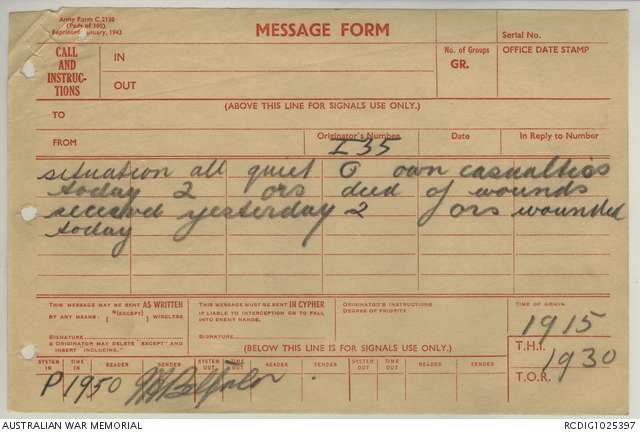 Army Form C.2130
(Pads of 100)
Reprinted January, 1943
MESSAGE FORM
Serial No.
CALL AND INSTRUC-TIONS
IN
OUT
No. of Groups
GR.
OFFICE DATE STAMP
(ABOVE THIS LINE FOR SIGNALS USE ONLY.)
TO
FROM
Originator's Number
Date
In Reply to Number
I35
situation all quiet O own casualties
today 2 ors died of wounds
received yesterday 2 ors wounded
today
THIS MESSAGE MAY BE SENT AS WRITTEN
BY ANY MEANS. (EXCEPT) WIRELESS
SIGNATURE
ORIGINATOR MAY DELETE "EXCEPT" AND
INSERT INCLUDING."
THIS MESSAGE MUST BE SENT IN CYPHER
IF LIABLE TO INTERCEPTION OR TO FALL
INTO ENEMY HANDS.
SIGNATURE
ORIGINATOR'S INSTRUCTIONS
DEGREE OF PRIORITY
TIME OF ORIGIN
1915
(BELOW THIS LINE IS FOR SIGNALS USE ONLY.)
T.H.I.
1930
T.O.R.
SYSTEM IN TIME IN READER SENDER SYSTEM OUT TIME OUT READER SENDER SYSTEM OUT TIME OUT READER SENDER
P 1950
AUSTRALIAN WAR MEMORIAL
RCDIG1025397